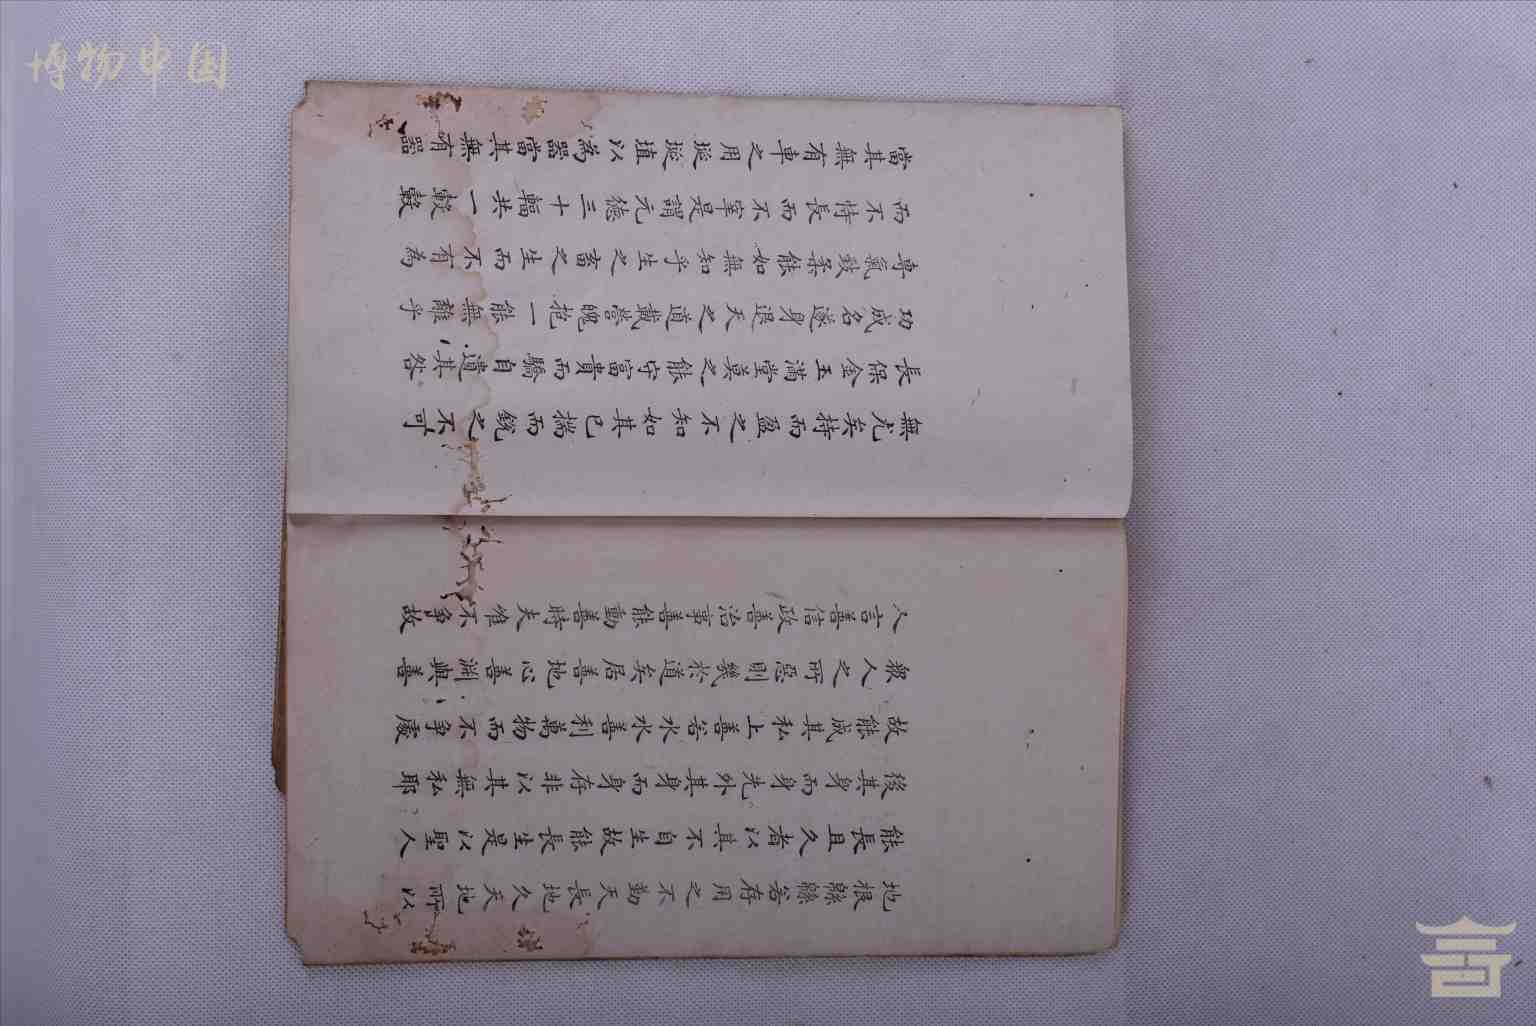 博物中国
地根緜緜若存用之不勤天長地久天地所以
能長且久者以其不自生故能長生是以聖人
後其身而身先外其身而身存非以其無私耶
故能成其私上善若水水善利萬物而不爭處
衆人之所惡則幾於道矣居善地心善淵與善
人言善信政善治事善能動善時夫惟不爭故
無尤矣持而盈之不知如其已揣而銳之不可
長保金玉滿堂莫之能守富貴而驕自遺其咎
功成名遂身退天之道載營魄抱一能無離乎
專氣致柔能如無知乎生之畜之生而不有為
而不恃長而不宰是謂元德三十輻共一轂轂
當其無有車之用埏埏埴以為器當其無有器